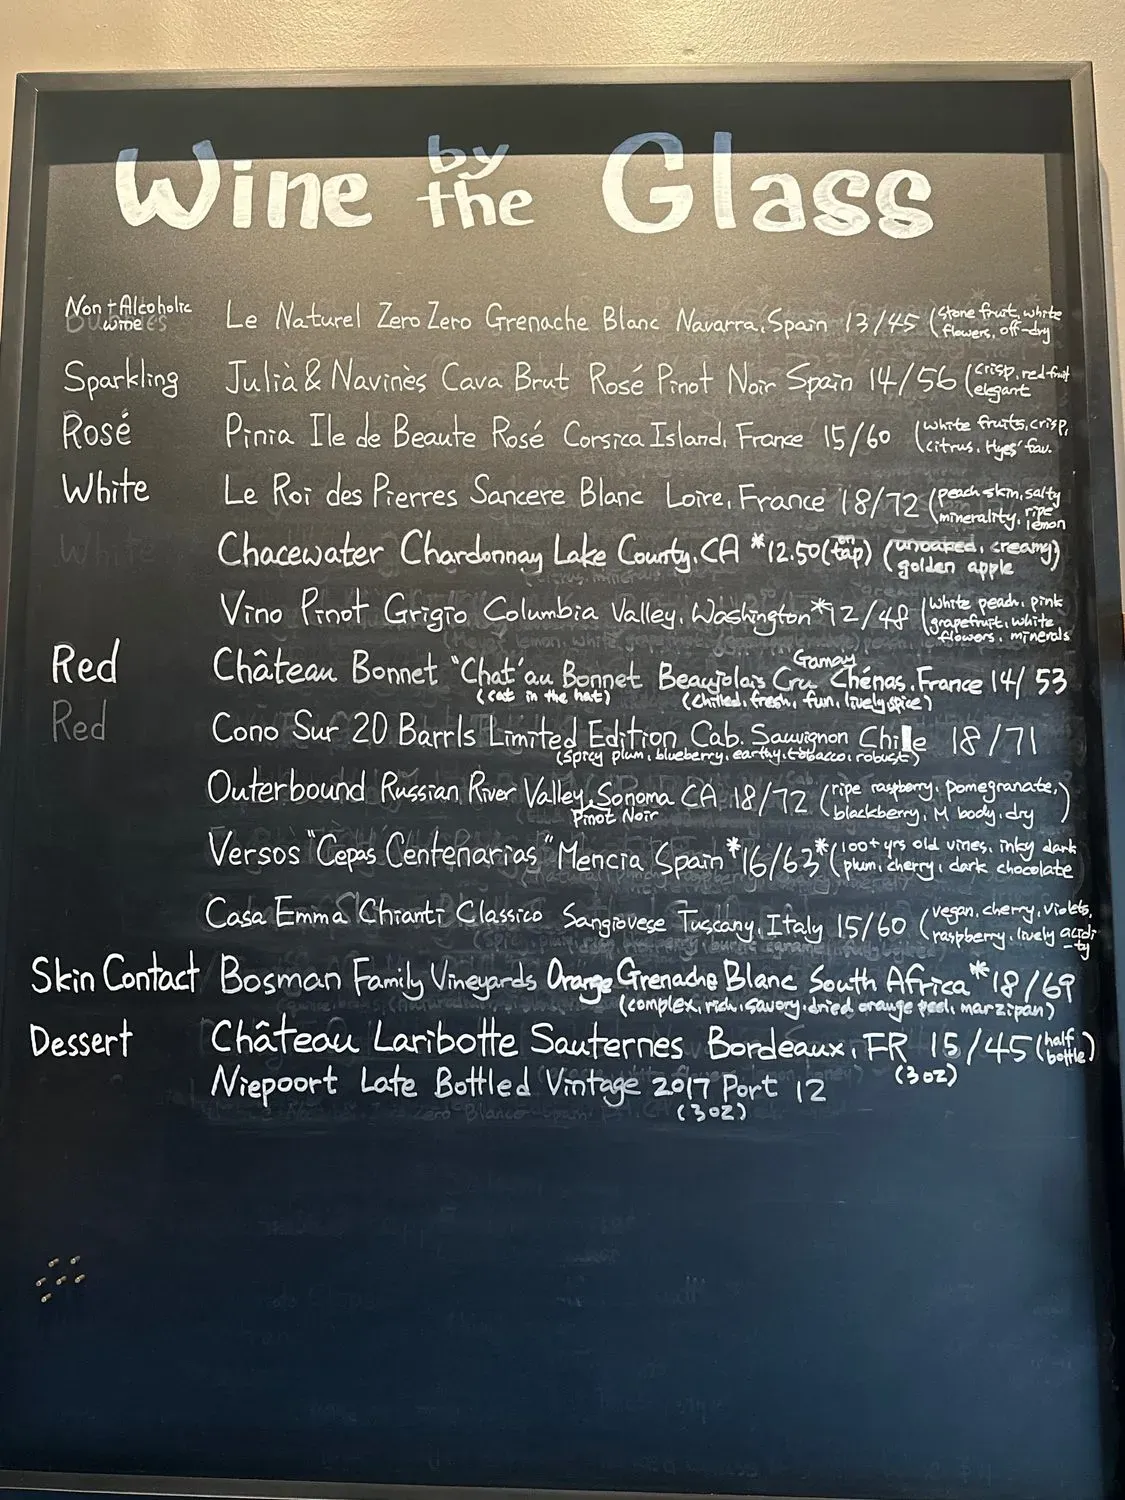 Wine by the Glass
Non-Alcoholic wine Le Naturel Zero Zero Grenache Blanc Navarra, Spain 13/45 (Stone fruit, white flowers, off-dry
Sparkling Julià & Navinès Cava Brut Rosé Pinot Noir Spain 14/56 (crisp, red fruit elegant
Rosé Pinia Ile de Beaute Rosé Corsica Island, France 15/60 (white fruits, crisp, citrus, Hyes' fav.
White Le Roi des Pierres Sancere Blanc Loire, France 18/72 (peach skin, salty minerality, ripe lemon
White
Chacewater Chardonnay Lake County, CA *12.50 (on tap) (unoaked, creamy) golden apple
Vino Pinot Grigio Columbia Valley, Washington *12/48 (white peach, pink grapefruit, white flowers, minerals
Red Château Bonnet "Chat'au Bonnet Beaujolais Cru Gamay Chénas, France 14/53
(cat in the hat) (chilled, fresh, fun, lively spice)
Red Cono Sur 20 Barrls Limited Edition Cab. Sauvignon Chile 18/71
(spicy plum, blueberry, earthy, tobacco, robust)
Outerbound Russian River Valley, Sonoma CA 18/72 (ripe raspberry, pomegranate, blackberry, M body, dry)
Pinot Noir
Versos "Cepas Centenarias" Mencia Spain *16/63* (100+ yrs old vines, inky dark plum, cherry, dark chocolate
Casa Emma Chianti Classico Sangiovese Tuscany, Italy 15/60 (vegan, cherry, violets, raspberry, lively acidi-ty
Skin Contact Bosman Family Vineyards Orange Grenache Blanc South Africa *18/69
(complex, rich, savory, dried orange peel, marzipan)
Dessert Château Laribotte Sauternes Bordeaux, FR 15/45 (half bottle)
(3oz)
Niepoort Late Bottled Vintage 2017 Port 12
(3oz)